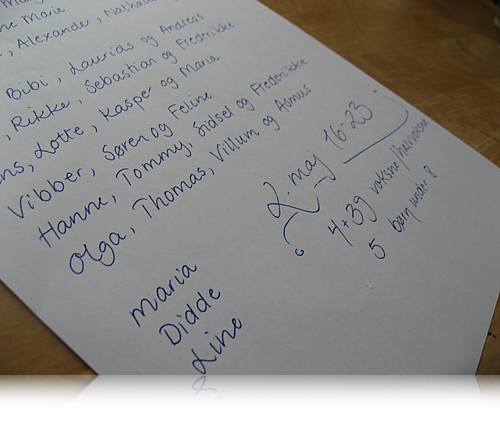 ne Marie
, Alexander, Nathana
Bibi, Laurids og Andreas
, Rikke, Sebastian og Frederikke
ns, Lotte, Kasper og Maria
Vibber, Søren og Feline
Hanne, Tommy, Sidsel og Frederikke
Olga, Thomas, Villum og Asmus
2. maj 16-23
4+39 voksne/halvvoksne
5 børn under 8
maria
Didde
Line